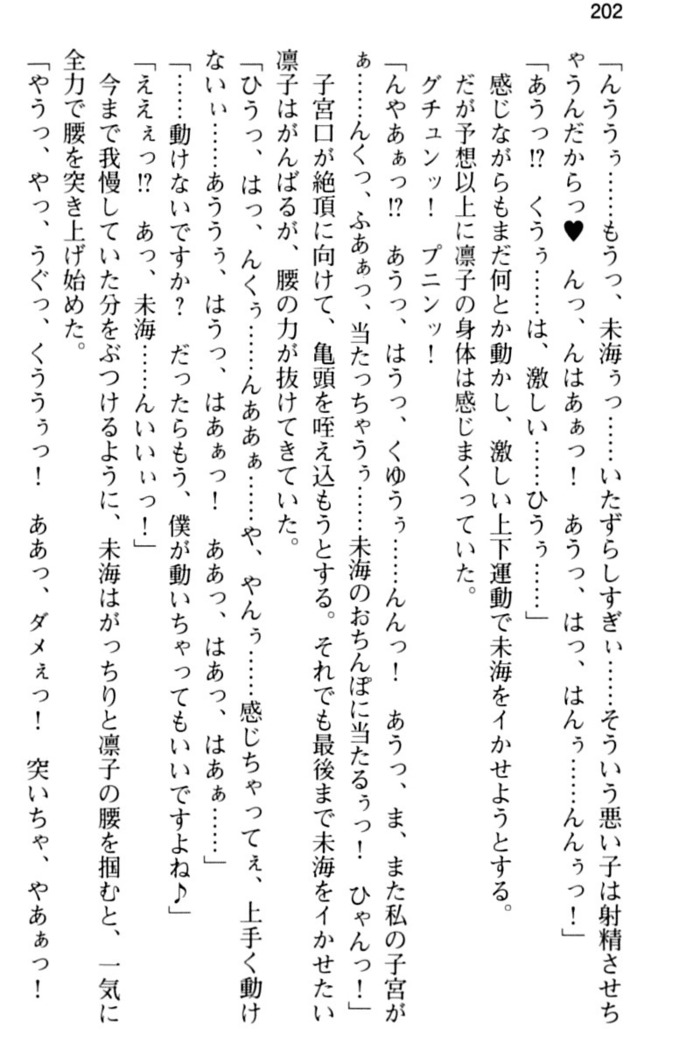 202
「んううぅ……もうっ、未海ぅっ……いたずらしすぎぃ……そういう悪い子は射精させち
ゃうんだからっ♥　んっ、んはあぁっ！　あうっ、はっ、はんぅ……んんぅっ！」
「あうっ!?　くうぅ……は、激しい……ひうぅ……」
　感じながらもまだ何とか動かし、激しい上下運動で未海をイかせようとする。
だが予想以上に凛子の身体は感じまくっていた。
　グチュンッ！　プニンッ！
「んやあぁっ!?　あうっ、はうっ、くゆうぅ……んんっ！　あうっ、ま、また私の子宮が
ぁ……んくっ、ふあぁっ、当たっちゃうぅ……未海のおちんぽに当たるぅっ！　ひゃんっ！」
　子宮口が絶頂に向けて、亀頭を咥え込もうとする。それでも最後まで未海をイかせたい
凛子はがんばるが、腰の力が抜けてきていた。
「ひうっ、はっ、んくぅ……んああぁ……や、やんぅ……感じちゃってぇ、上手く動け
ないぃ……あううぅ、はうっ、はあぁっ！　ああっ、はあっ、はあぁ……」
「……動けないですか？　だったらもう、僕が動いちゃってもいいですよね♪」
「ええぇっ!?　あっ、未海……んいいぃっ！」
　今まで我慢していた分をぶつけるように、未海はがっちりと凛子の腰を掴むと、一気に
全力で腰を突き上げ始めた。
「やうっ、やっ、うぐっ、くううぅっ！　ああっ、ダメぇっ！　突いちゃ、やあぁっ！